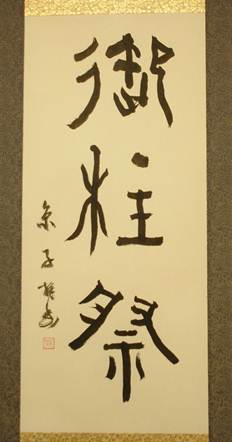 御柱祭